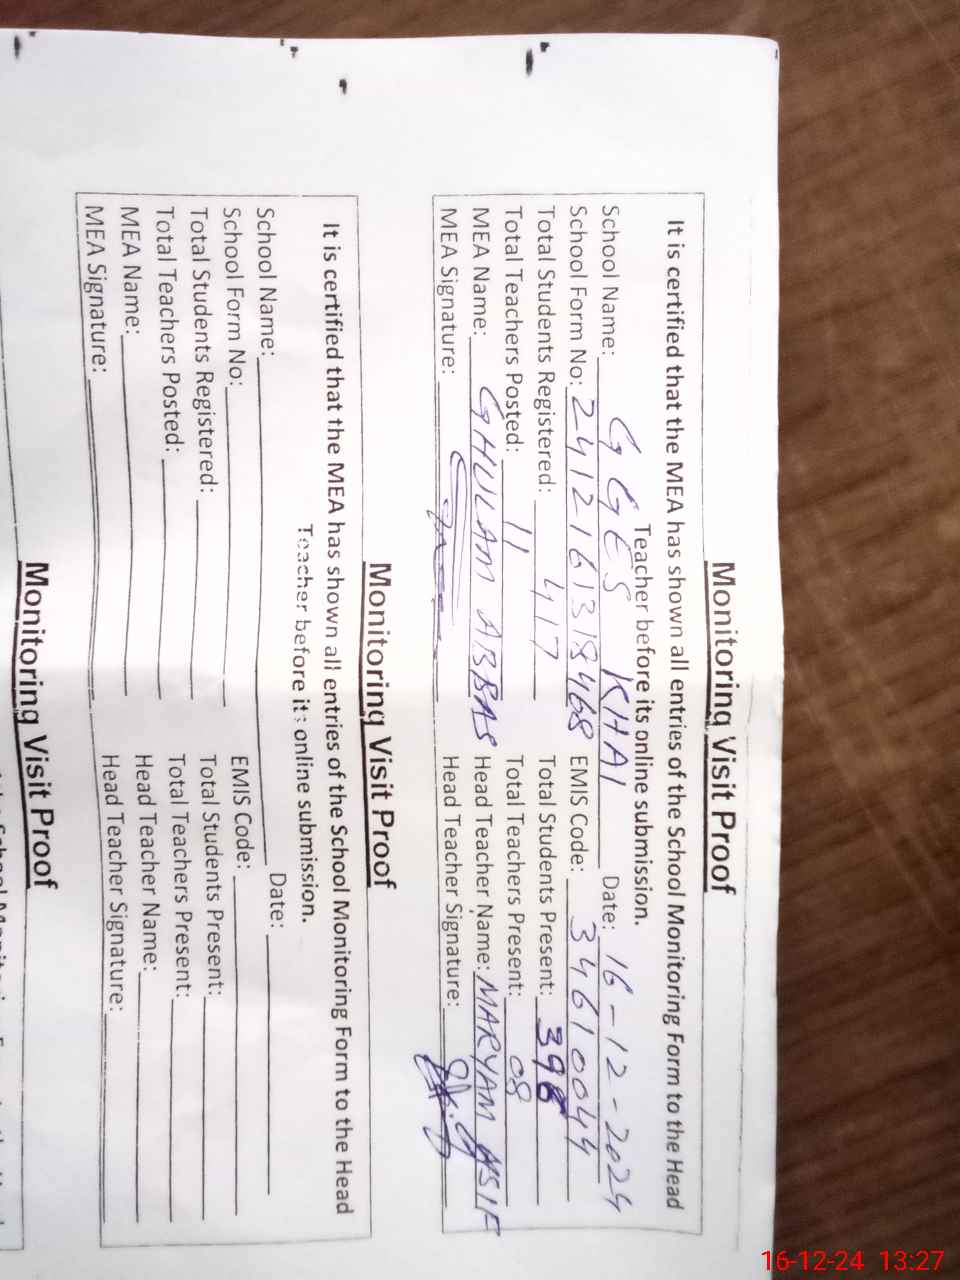 Monitoring Visit Proof
It is certified that the MEA has shown all entries of the School Monitoring Form to the Head
Teacher before its online submission.
School Name: GGES KHAI Date: 16-12-2024
School Form No: 2412161318468 EMIS Code: 34610044
Total Students Registered: 417 Total Students Present: 398
Total Teachers Posted: 11 Total Teachers Present: 08
MEA Name: GHULAM ABBAS Head Teacher Name: MARYAM ASIF
MEA Signature: Head Teacher Signature:
Monitoring Visit Proof
It is certified that the MEA has shown all entries of the School Monitoring Form to the Head
Teacher before its online submission.
School Name: Date:
School Form No: EMIS Code:
Total Students Registered: Total Students Present:
Total Teachers Posted: Total Teachers Present:
MEA Name: Head Teacher Name:
MEA Signature: Head Teacher Signature:
Monitoring Visit Proof
16-12-24 13:27